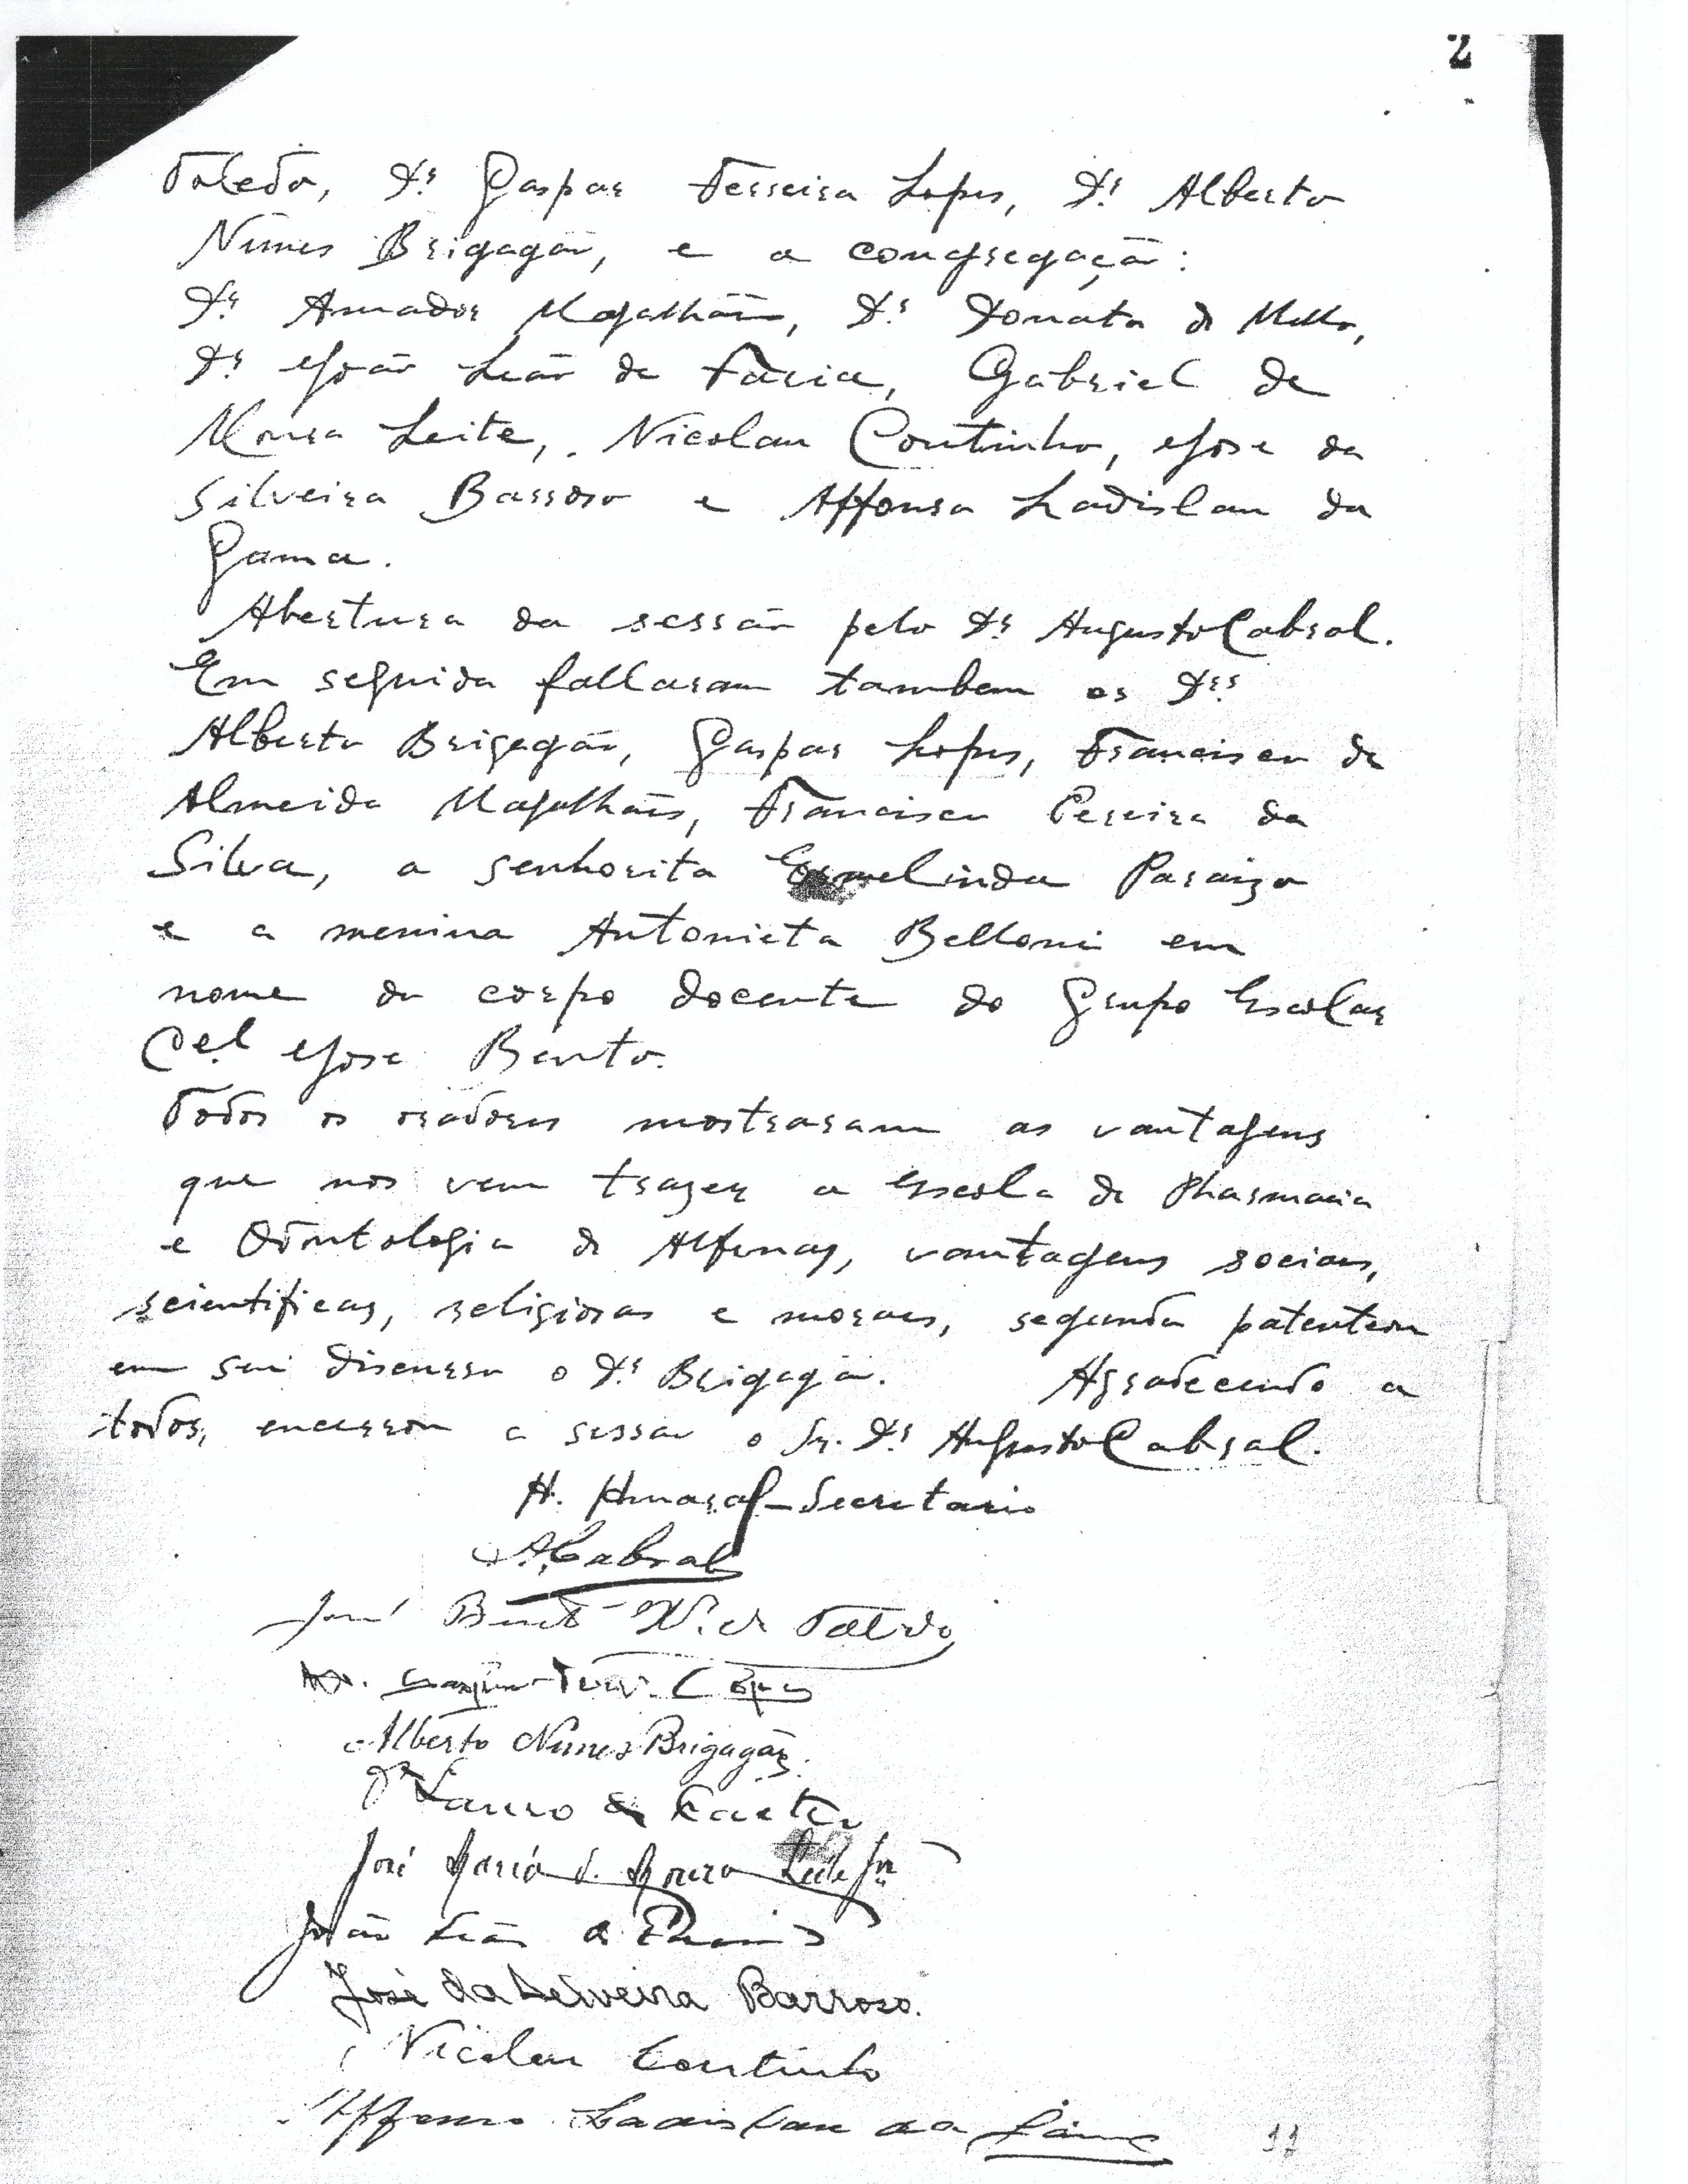 2
Toledo, Dr. Gaspar Ferreira Lopes, Dr. Alberto
Nunes Brigagão, e a congregação:
Dr. Amador Magalhães, Dr. Donato de Mello,
Dr. João Leão de Faria, Gabriel de
Moura Leite, Nicolau Coutinho, Jose da
Silveira Barroso e Affonso Ladislau da
Gama.
Abertura da sessão pelo Dr. Augusto Cabral.
Em seguida fallaram tambem os Drs.
Alberto Brigagão, Gaspar Lopes, Francisco de
Almeida Magalhães, Francisco Pereira da
Silva, a senhorita Ermelinda Paraizo
e a menina Antonieta Belloni em
nome do corpo docente do Grupo Escolar
Cel. Jose Bento.
Todos os oradores mostraram as vantagens
que nos vem trazer a Escola de Pharmacia
e Odontologia de Alfenas, vantagens sociaes,
scientificas, religiosas e moraes, segundo patenteou
em seu discurso o Dr. Brigagão. Agradecendo a
todos, encerrou a sessão o Sr. Dr. Augusto Cabral.
H. Amaral - Secretario
A. Cabral
José Bento X. de Toledo
Gaspar Ferr. Lopes
Alberto Nunes Brigagão.
Lauro de
José Maria d. Moura Leite Jnr
João Leão de Faria
José da Silveira Barroso.
Nicolau Coutinho
Affonso Ladislau da Gama
17